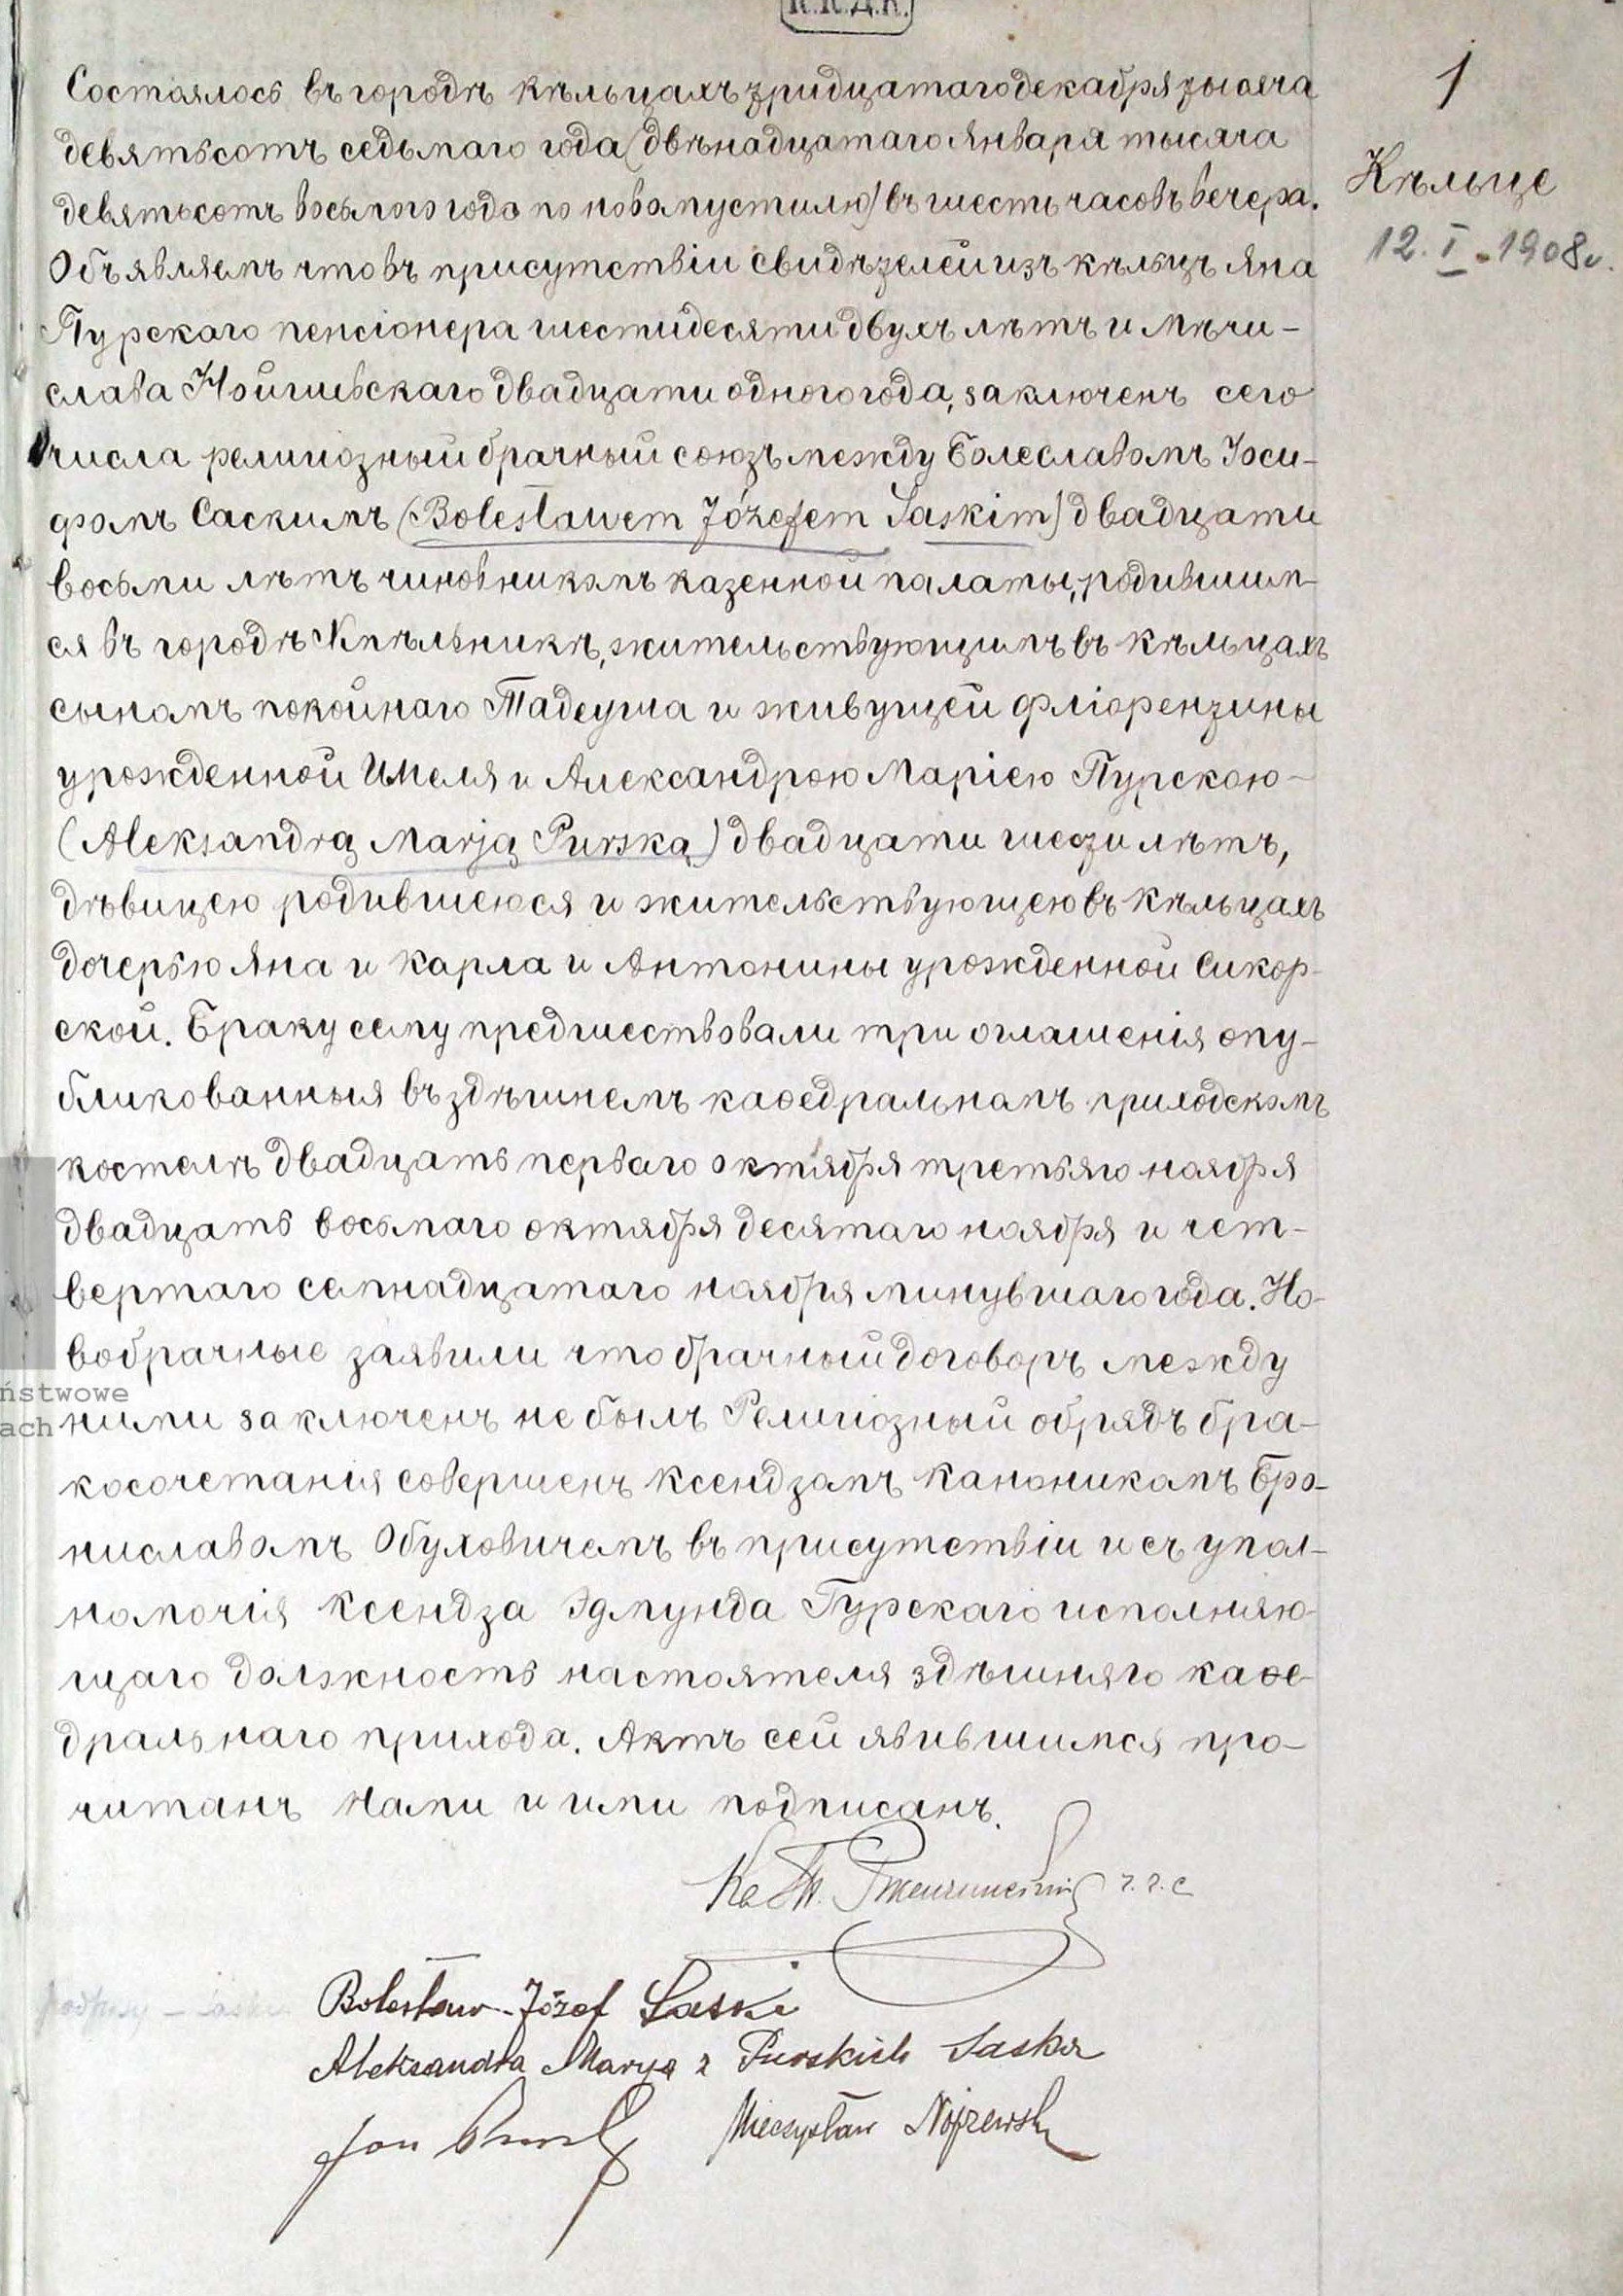 К.К.Д.К.
1
Кѣльце
12.I.1908 г.
Состоялось въ городѣ Кѣльцахъ тридцатаго декабря тысяча
девятьсотъ седьмаго года (двѣнадцатаго января тысяча
девятьсотъ восьмого года по новому стилю) въ шесть часовъ вечера.
Объявляемъ что въ присутствіи свидѣтелей изъ Кѣльцъ Яна
Пурскаго пенсіонера шестидесяти двухъ лѣтъ и Мѣчи-
слава Нойшевскаго двадцати одного года, заключенъ сего
числа религіозный брачный союзъ между Болеславомъ Іоси-
фомъ Саскимъ (Bolesławem Józefem Saskim) двадцати
восьми лѣтъ чиновникомъ казенной палаты, родившим-
ся въ городѣ Хмѣльникѣ, жительствующимъ въ Кѣльцахъ
сыномъ покойнаго Тадеуша и живущей Фліорентины
урожденной Имеля и Александрою Маріею Пурскою
(Aleksandrą Marją Purską) двадцати шести лѣтъ,
дѣвицею родившеюся и жительствующею въ Кѣльцахъ
дочерью Яна и Карла и Антонины урожденной Сикор-
ской. Браку сему предшествовали три оглашенія опу-
бликованныя въ здѣшнемъ каѳедральномъ приходскомъ
костелѣ двадцать перваго октября третьяго ноября
двадцать восьмаго октября десятаго ноября и чет-
вертаго семнадцатаго ноября минувшаго года. Но-
вобрачные заявили что брачный договоръ между
ними заключенъ не былъ Религіозный обрядъ бра-
косочетанія совершенъ Ксендзомъ Каноникомъ Бро-
ниславомъ Обуховичемъ въ присутствіи и съ упол-
номочія Ксендза Эдмунда Гурскаго исполняю-
щаго должность настоятеля здѣшняго каѳе-
дральнаго прихода. Актъ сей явившимся про-
читанъ Нами и ими подписанъ.
ństwowe
ach
Bolesław Józef Saski
Aleksandra Marya z Purskich Saska
Jan Purski Mieczysław Nojszewski